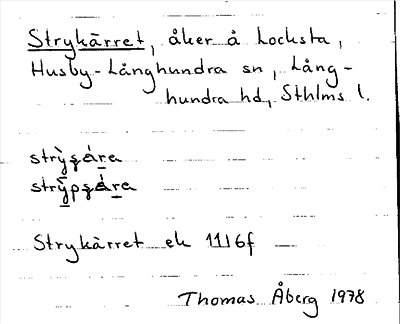 Strykärret, åker å Locksta,
Husby-Långhundra sn, Lång-
hundra hd, Sthlms l.
strỳʂá̤ra
strỳ̤pʂá̤ra
Strykärret ek 11I6f
Thomas Åberg 1978